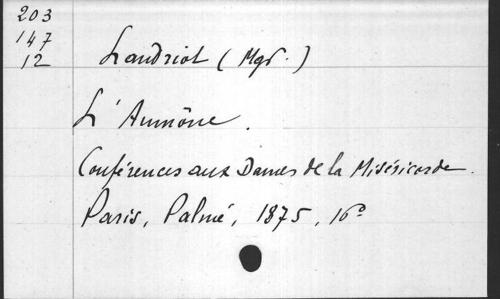 203
147
12
Landriot (Mgr.)
L'Aumône.
Conférences aux Dames de la Miséricorde.
Paris, Palmé, 1875, 16º